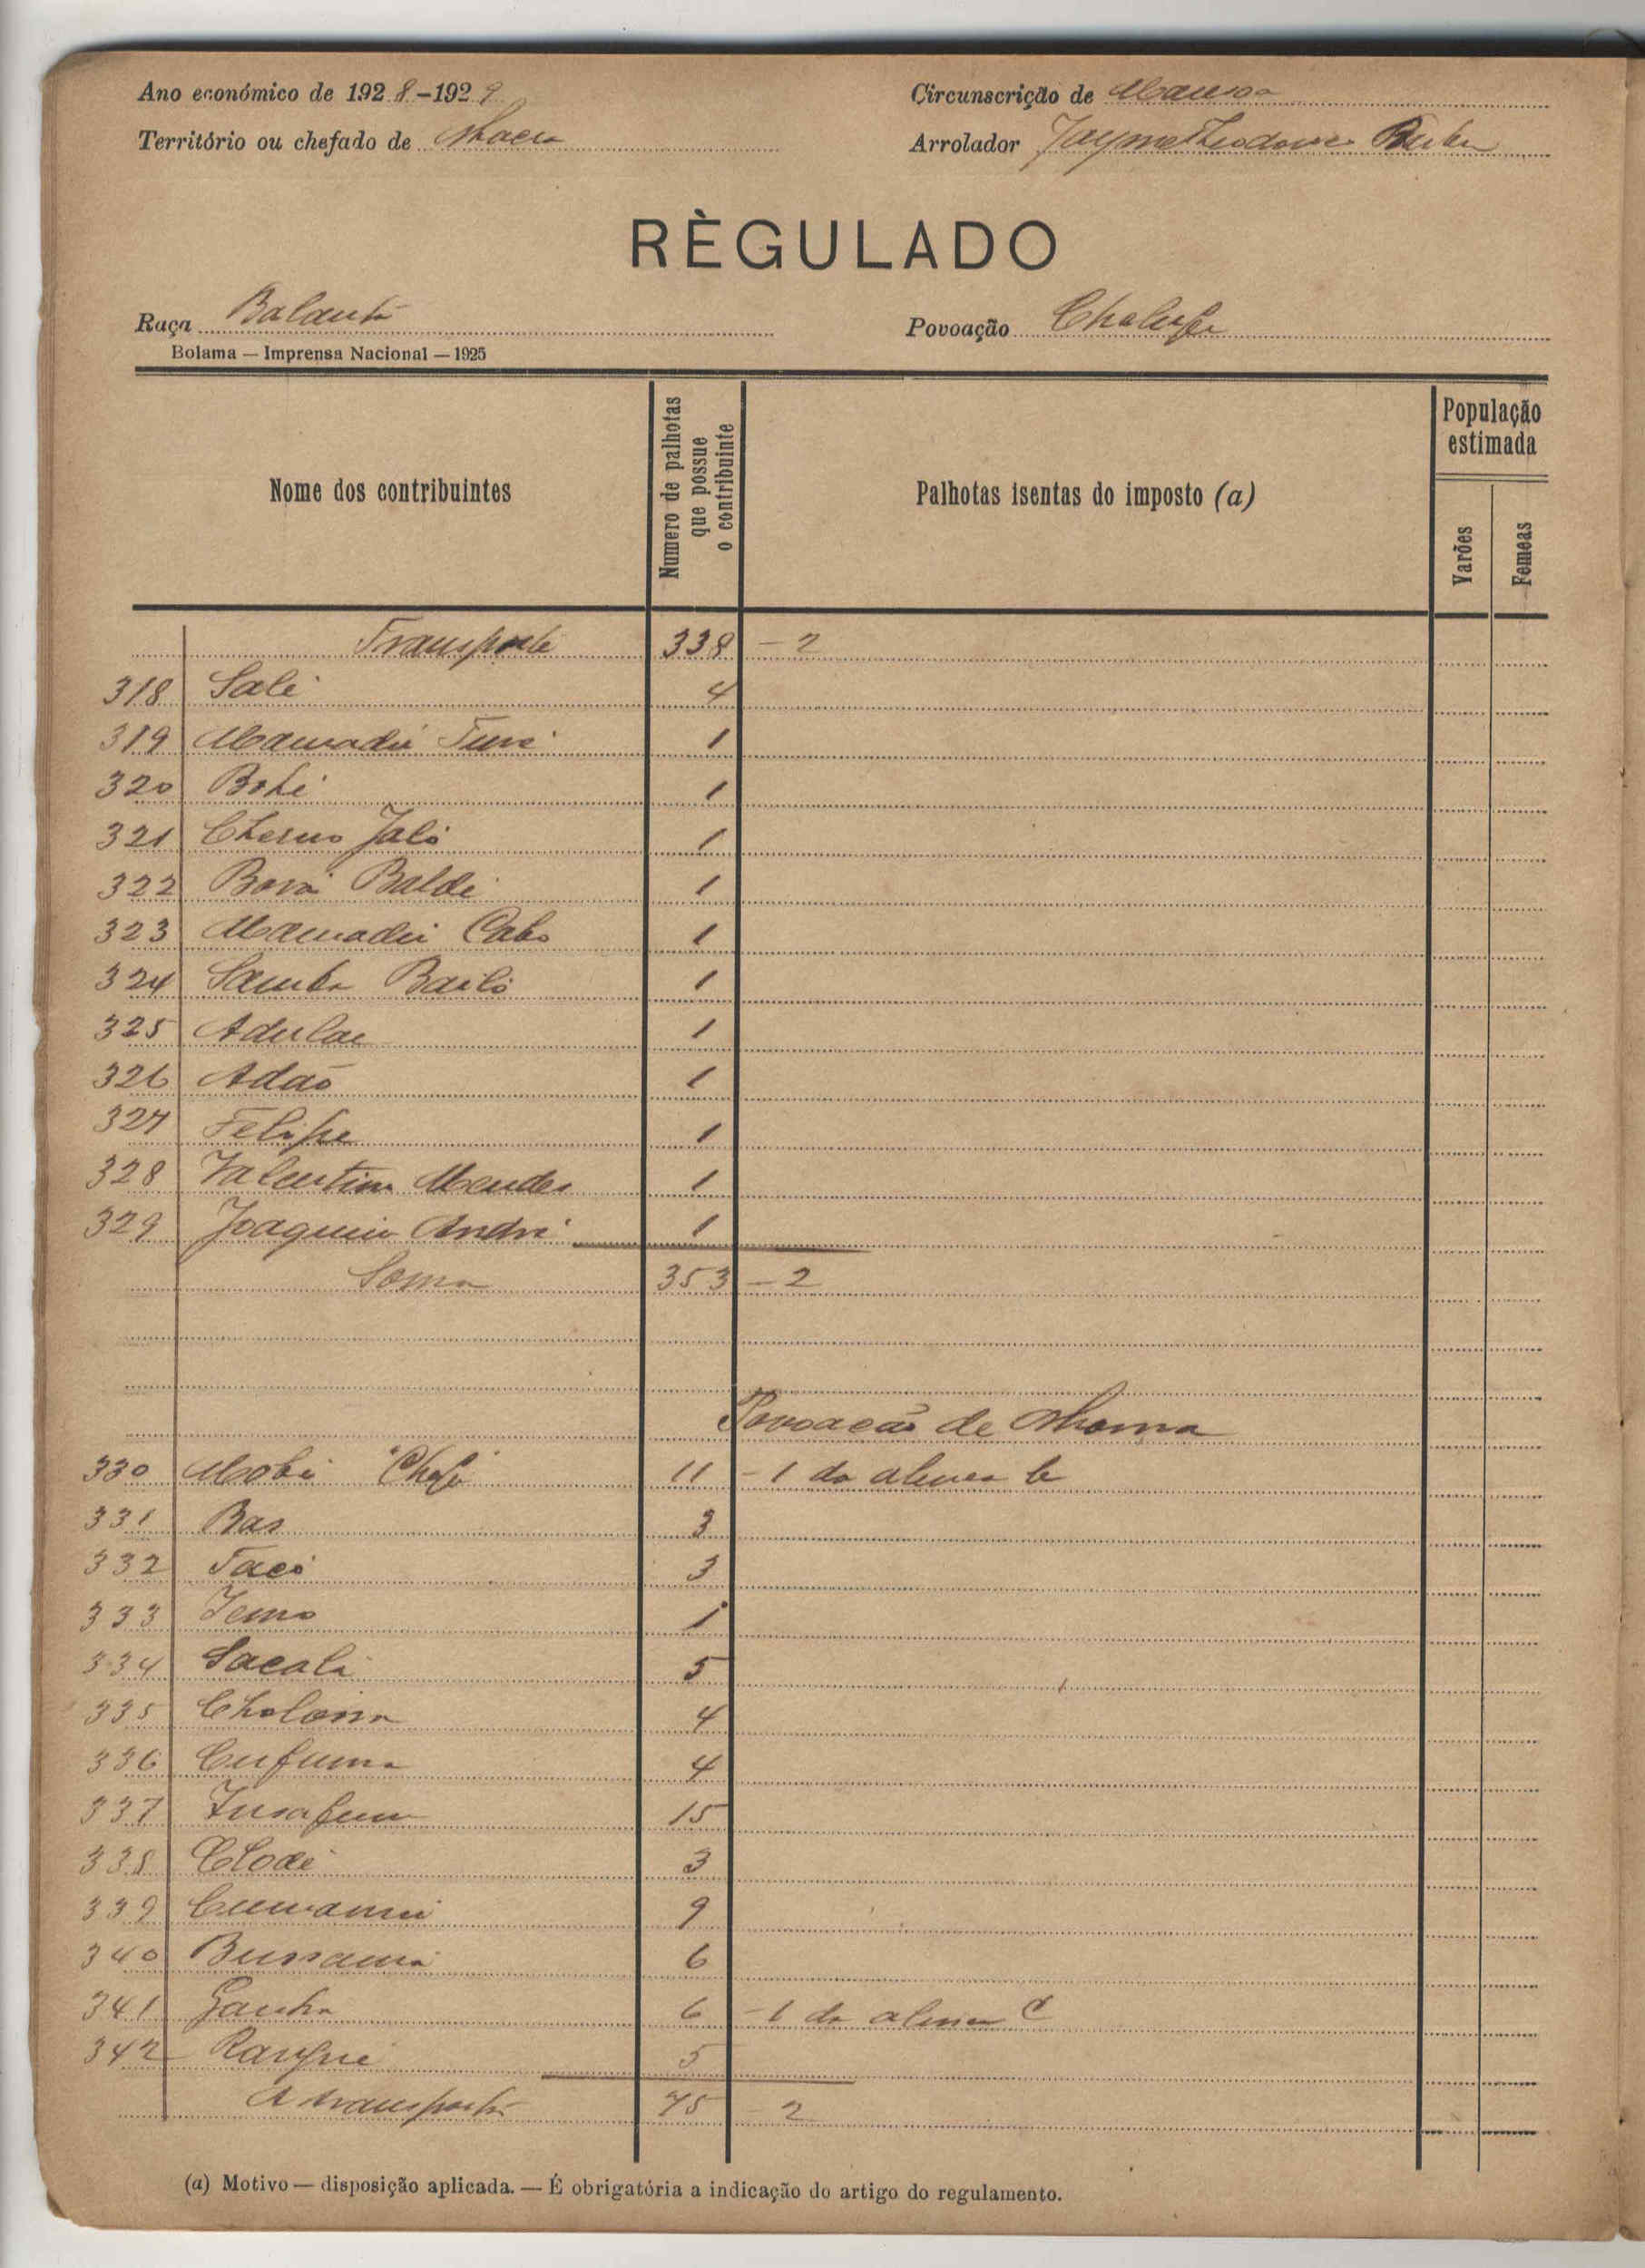 Ano económico de 1928-1929
Circunscrição de Mansoa
Território ou chefado de
Arrolador Jayme Theodoro
RÈGULADO
Raça Balanta
Povoação
Bolama — Imprensa Nacional — 1925
Nome dos contribuintes
Numero de palhotas que possue o contribuinte
Palhotas isentas do imposto (a)
População estimada
Varões
Femeas
Transporte 338 - 2
318 Sali 4
319 Mamadú Turé 1
320 1
321 Cherno Jaló 1
322 Baldé 1
323 Mamadú 1
324 Samba Bailó 1
325 Adulae 1
326 Adão 1
327 Felipe 1
328 Valentim Mendes 1
329 Joaquim André 1
Soma 353 - 2
Povoação de
330 Chefe 11 - 1 da alinea b
331 3
332 3
333 1
334 Sacalá 5
335 4
336 Cufuma 4
337 15
338 3
339 9
340 6
341 6 - 1 da alinea C
342 5
A transportar 75 - 2
(a) Motivo — disposição aplicada. — É obrigatória a indicação do artigo do regulamento.